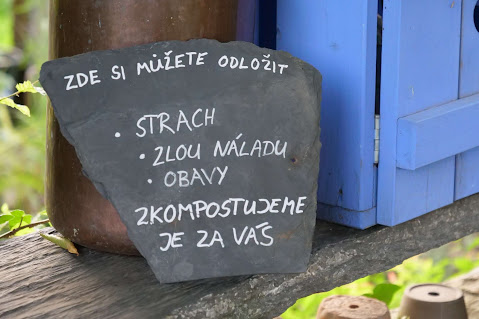 ZDE SI MŮŽETE ODLOŽIT
• STRACH
• ZLOU NÁLADU
• OBAVY
ZKOMPOSTUJEME
JE ZA VÁS